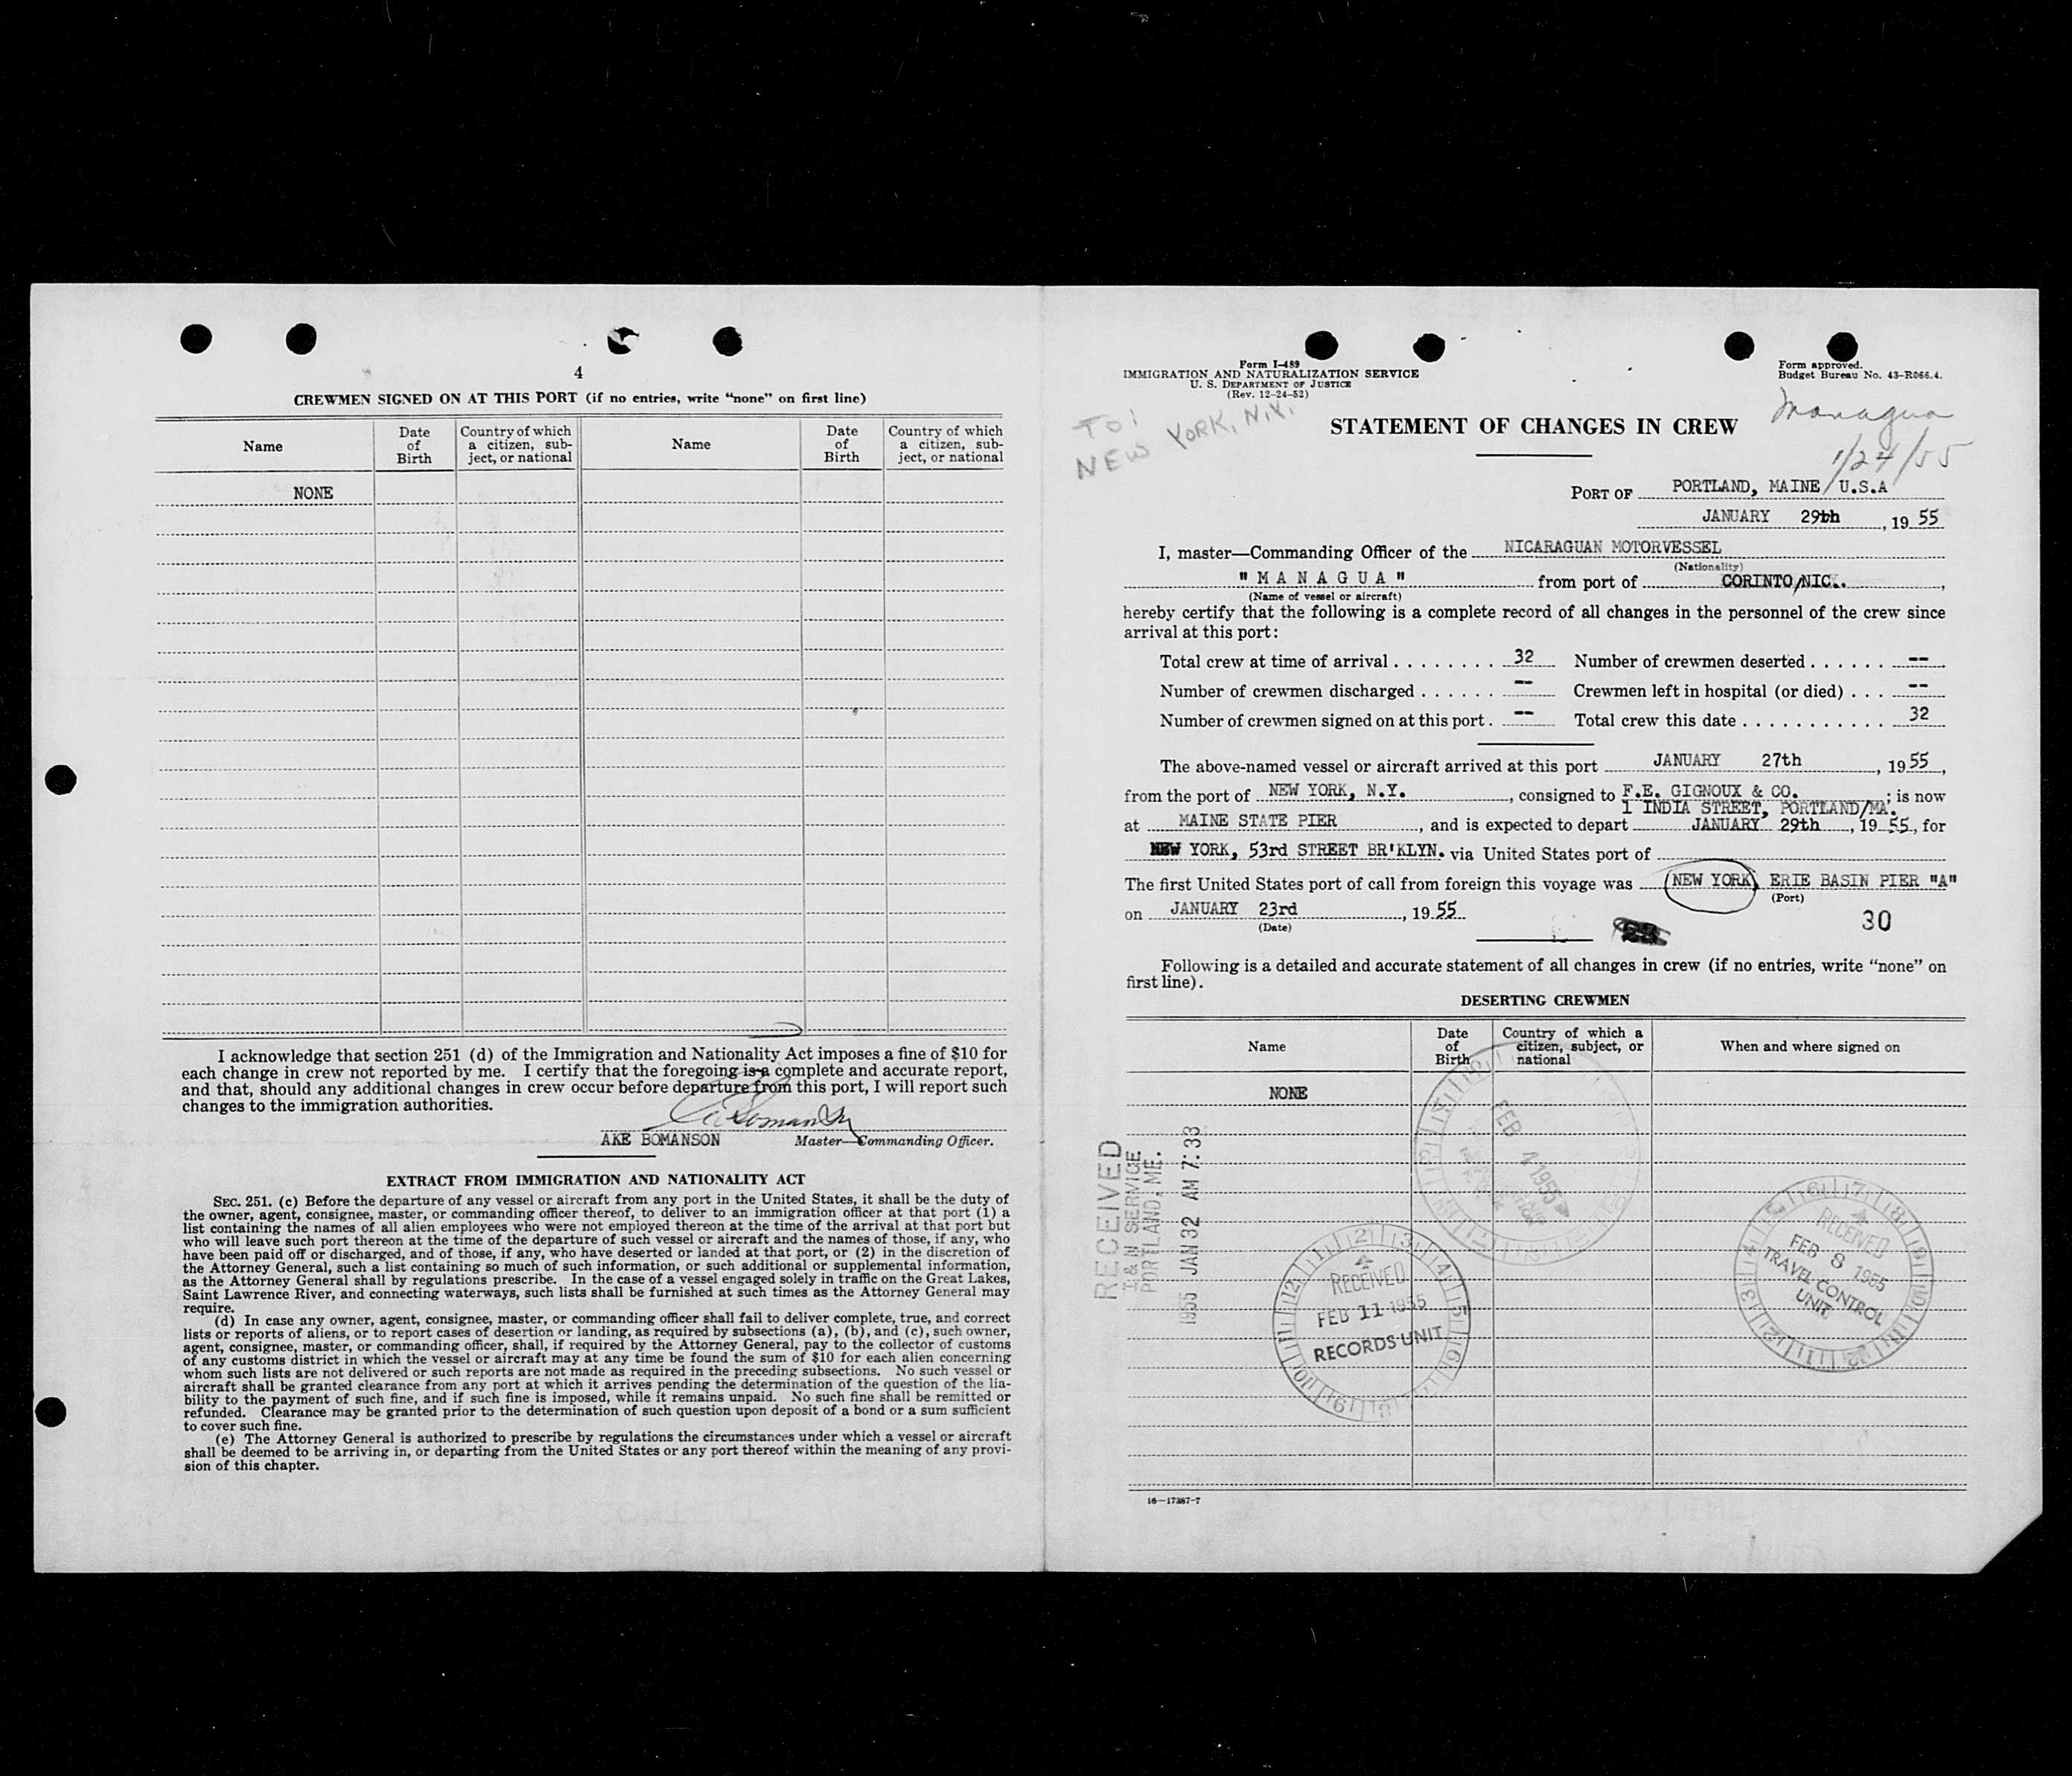 4
CREWMEN SIGNED ON AT THIS PORT (if no entries, write “none” on first line)
Name
Date of Birth
Country of which a citizen, sub-ject, or national
Name
Date of Birth
Country of which a citizen, sub-ject, or national
NONE
I acknowledge that section 251 (d) of the Immigration and Nationality Act imposes a fine of $10 for
each change in crew not reported by me. I certify that the foregoing is a complete and accurate report,
and that, should any additional changes in crew occur before departure from this port, I will report such
changes to the immigration authorities.
AKE BOMANSON Master—Commanding Officer.
EXTRACT FROM IMMIGRATION AND NATIONALITY ACT
SEC. 251. (c) Before the departure of any vessel or aircraft from any port in the United States, it shall be the duty of
the owner, agent, consignee, master, or commanding officer thereof, to deliver to an immigration officer at that port (1) a
list containing the names of all alien employees who were not employed thereon at the time of the arrival at that port but
who will leave such port thereon at the time of the departure of such vessel or aircraft and the names of those, if any, who
have been paid off or discharged, and of those, if any, who have deserted or landed at that port, or (2) in the discretion of
the Attorney General, such a list containing so much of such information, or such additional or supplemental information,
as the Attorney General shall by regulations prescribe. In the case of a vessel engaged solely in traffic on the Great Lakes,
Saint Lawrence River, and connecting waterways, such lists shall be furnished at such times as the Attorney General may
require.
(d) In case any owner, agent, consignee, master, or commanding officer shall fail to deliver complete, true, and correct
lists or reports of aliens, or to report cases of desertion or landing, as required by subsections (a), (b), and (c), such owner,
agent, consignee, master, or commanding officer, shall, if required by the Attorney General, pay to the collector of customs
of any customs district in which the vessel or aircraft may at any time be found the sum of $10 for each alien concerning
whom such lists are not delivered or such reports are not made as required in the preceding subsections. No such vessel or
aircraft shall be granted clearance from any port at which it arrives pending the determination of the question of the lia-
bility to the payment of such fine, and if such fine is imposed, while it remains unpaid. No such fine shall be remitted or
refunded. Clearance may be granted prior to the determination of such question upon deposit of a bond or a sum sufficient
to cover such fine.
(e) The Attorney General is authorized to prescribe by regulations the circumstances under which a vessel or aircraft
shall be deemed to be arriving in, or departing from the United States or any port thereof within the meaning of any provi-
sion of this chapter.
Form I-489
IMMIGRATION AND NATURALIZATION SERVICE
U. S. DEPARTMENT OF JUSTICE
(Rev. 12-24-52)
Form approved.
Budget Bureau No. 43-R066.4.
TO:
NEW YORK, N.Y.
Managua
1/24/55
STATEMENT OF CHANGES IN CREW
PORT OF PORTLAND, MAINE/U.S.A
JANUARY 29th, 1955
I, master—Commanding Officer of the NICARAGUAN MOTORVESSEL
(Nationality)
"MANAGUA" from port of CORINTO/NIC..,
(Name of vessel or aircraft)
hereby certify that the following is a complete record of all changes in the personnel of the crew since
arrival at this port:
Total crew at time of arrival . . . . . . . . 32 Number of crewmen deserted . . . . . . --
Number of crewmen discharged . . . . . . -- Crewmen left in hospital (or died) . . . --
Number of crewmen signed on at this port . -- Total crew this date . . . . . . . . . . . 32
The above-named vessel or aircraft arrived at this port JANUARY 27th, 1955,
from the port of NEW YORK, N.Y., consigned to F.E. GIGNOUX & CO. ; is now
1 INDIA STREET, PORTLAND/MA.
at MAINE STATE PIER, and is expected to depart JANUARY 29th, 1955, for
NEW YORK, 53rd STREET BR'KLYN. via United States port of
The first United States port of call from foreign this voyage was NEW YORK, ERIE BASIN PIER "A"
(Port)
on JANUARY 23rd, 1955.
(Date)
30
Following is a detailed and accurate statement of all changes in crew (if no entries, write “none” on
first line).
DESERTING CREWMEN
Name
Date of Birth
Country of which a citizen, subject, or national
When and where signed on
NONE
RECEIVED
I & N SERVICE
PORTLAND, ME.
1955 JAN 32 AM 7:33
FEB 4 1955
RECEIVED
FEB 11 1955
RECORDS UNIT
RECEIVED
FEB 8 1955
TRAVEL CONTROL
UNIT
16—17387-7